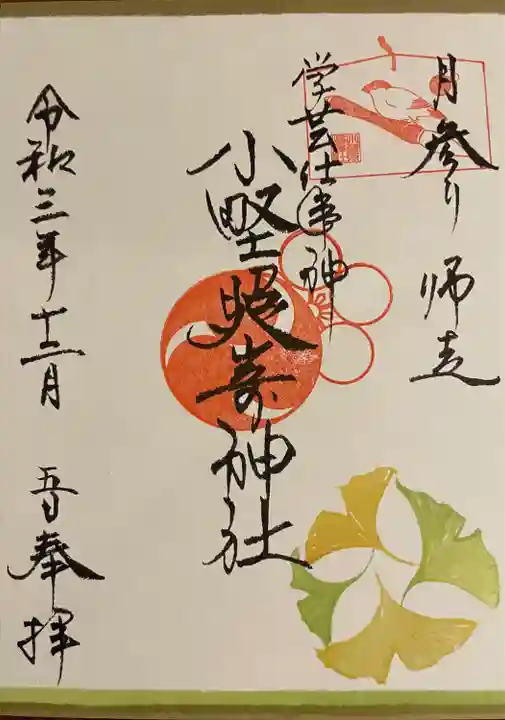 月参り 師走
学芸仕事神
小野照崎神社
令和三年十二月 吾日 奉拝